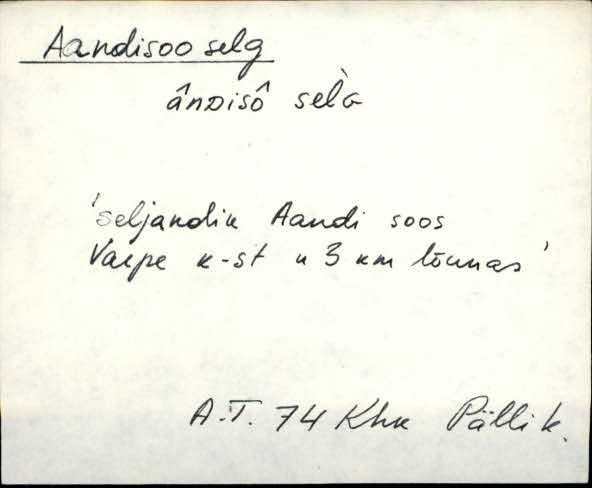 Aandisoo selg
ânᴅisô sel̀ɢ
'seljandik Aandi soos
Vaipe k-st u 3 km lõunas'
A.T. 74 Khk Pälli k.